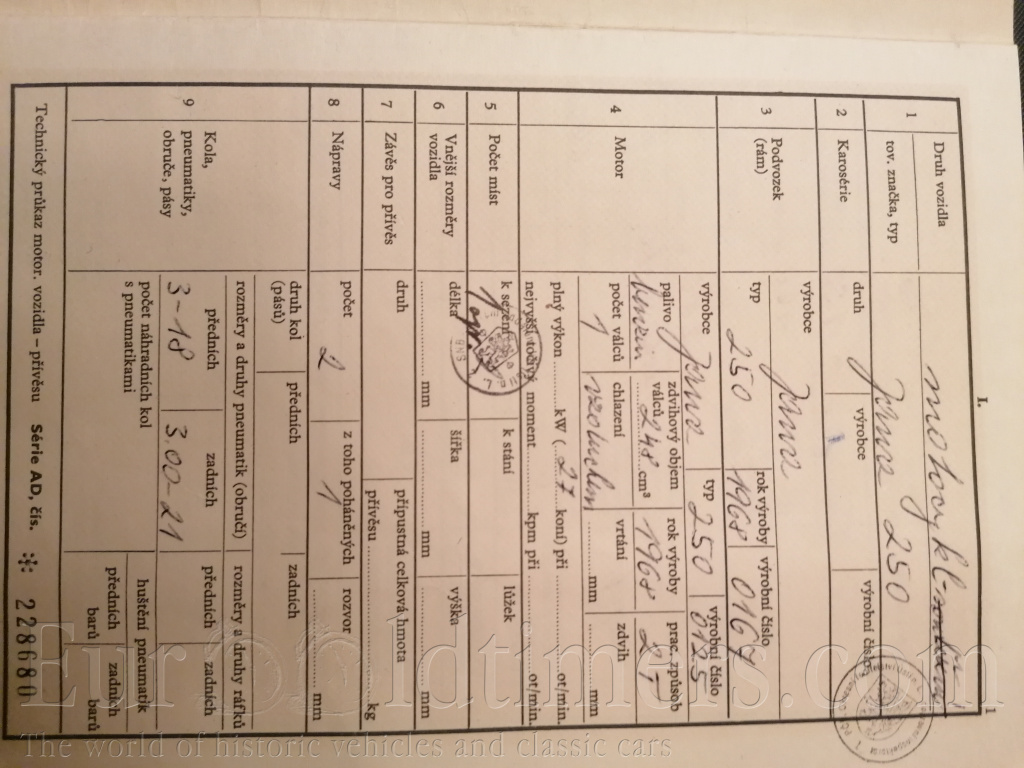 I.
1
1 Druh vozidla motocykl
tov. značka, typ Jawa 250
2 Karosérie druh výrobce výrobní číslo
3 Podvozek (rám) výrobce Jawa
typ 250 rok výroby 1968 výrobní číslo
4 Motor výrobce Jawa typ 250 výrobní číslo 0125
palivo zdvihový objem válců 248 cm³ rok výroby 1968 prac. způsob 2T
počet válců 1 chlazení vzduchem vrtání mm zdvih
plný výkon kW (27 koní) při ot/min.
nejvyšší točivý moment kpm při ot/min.
5 Počet míst k sezení k stání lůžek
6 Vnější rozměry vozidla délka mm šířka mm výška mm
7 Závěs pro přívěs druh přípustná celková hmota přívěsu kg
8 Nápravy počet 2 z toho poháněných 1 rozvor mm
9 Kola, pneumatiky, obruče, pásy druh kol (pásů) předních zadních
rozměry a druhy pneumatik (obručí) rozměry a druhy ráfků
předních zadních předních zadních
3-18 3.00-21
počet náhradních kol s pneumatikami huštění pneumatik
předních barů zadních barů
Technický průkaz motor. vozidla – přívěsu Série AD, čís. 228680
EurOldtimers.com
The world of historic vehicles and classic cars